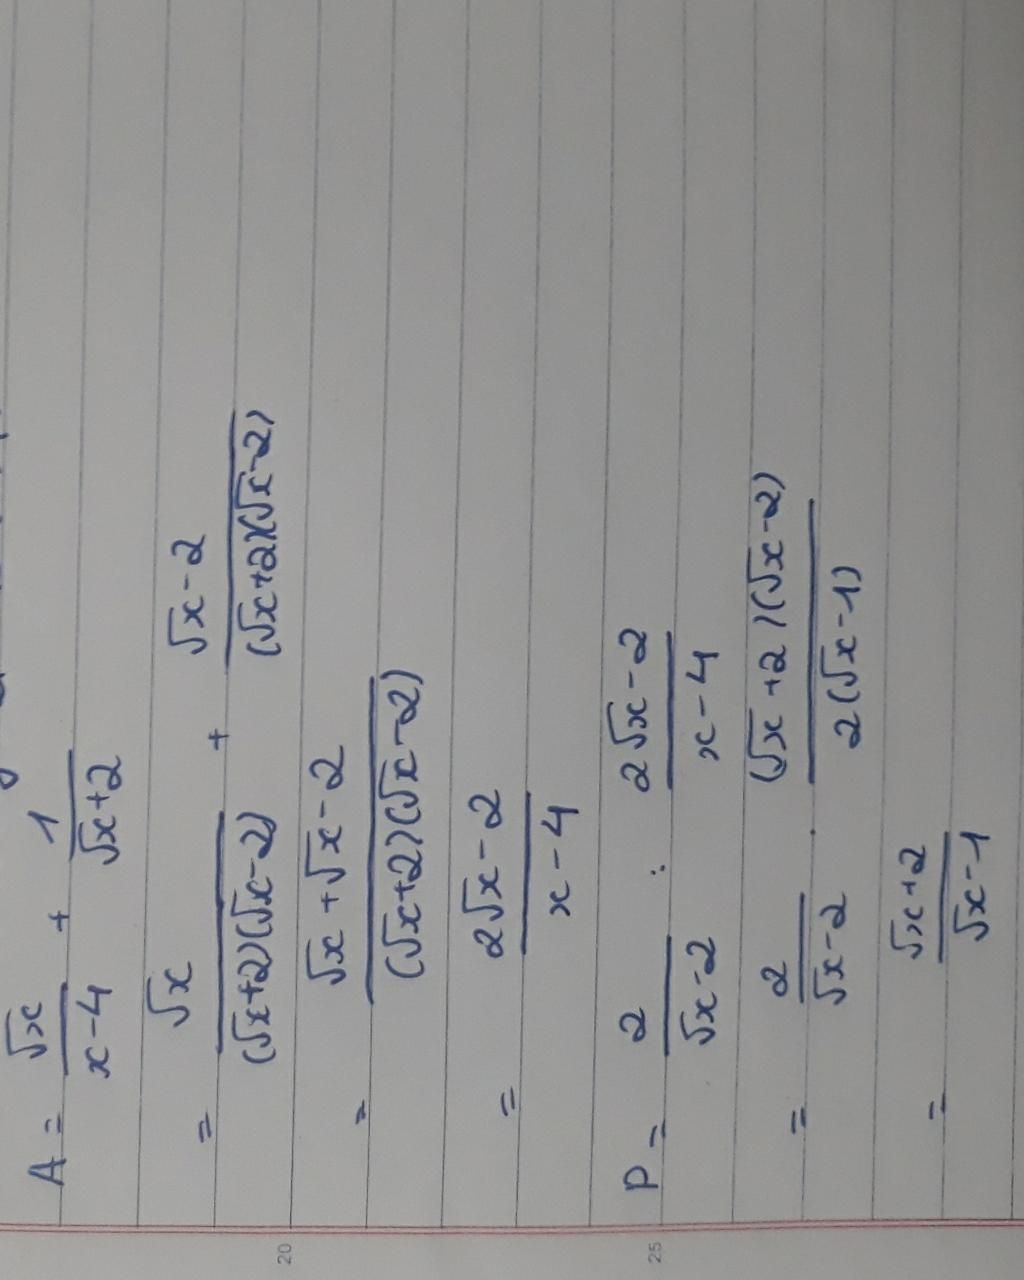 A = √x/(x-4) + 1/(√x+2)
= √x/((√x+2)(√x-2)) + (√x-2)/((√x+2)(√x-2))
= (√x+√x-2)/((√x+2)(√x-2))
= (2√x-2)/(x-4)
P = 2/(√x-2) : (2√x-2)/(x-4)
= 2/(√x-2) . ((√x+2)(√x-2))/(2(√x-1))
= (√x+2)/(√x-1)
20
25